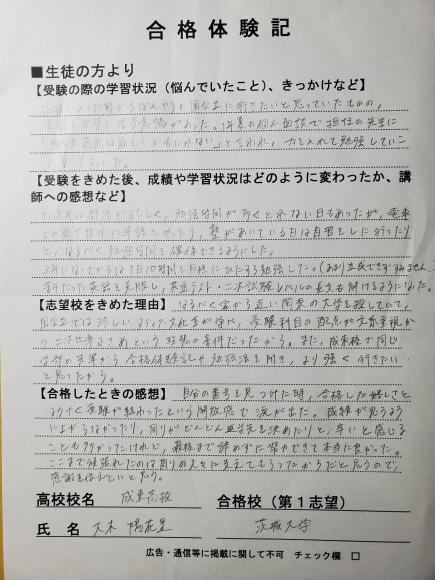 合格体験記
■生徒の方より
【受験の際の学習状況（悩んでいたこと）、きっかけなど】
国公立に行きたいと思っていたものの、
があった。1年夏の個人面談で担任の先生に
かもしれない」と言われ、力を入れて勉強していこ
【受験をきめた後、成績や学習状況はどのように変わったか、講
師への感想など】
忙しく、勉強時間が多くとれない日もあったが、電車
塾があいている日は自習をしに行ったり
と、なるべく勉強時間を確保できるようにした。
3年になってからは1日10時間を目標にひたすら勉強した。（あまり達成できずすみません
英語を克服し、共通テスト・二次試験レベルの長文も解けるようになった。
【志望校をきめた理由】なるべく家から近い関東の大学を探していて、
国公立では珍しいメディア文化を学べ、受験科目の配点が文系重視か
つ二次比率小さめという好都合の条件だったから。また、成東校で同じ
学部の先輩から合格体験談や勉強法を聞き、より強く行きたい
と思ったから。
【合格したときの感想】自分の番号を見つけた時、合格した嬉しさと
ようやく受験が終わったという開放感で涙が出た。成績が思うよう
に上がらなかったり、周りがどんどん進学先を決めたりと、辛いと感じる
ことも多かったけれど、最後まで諦めずに努力できて本当に良かった。
ここまで頑張れたのは周りの人々に支えてもらったからだと思うので、
感謝を伝えたいと思う。
高校校名 成東高校 合格校（第１志望）
氏名 大木 陽菜里 茨城大学
広告・通信等に掲載に関して不可 チェック欄 □